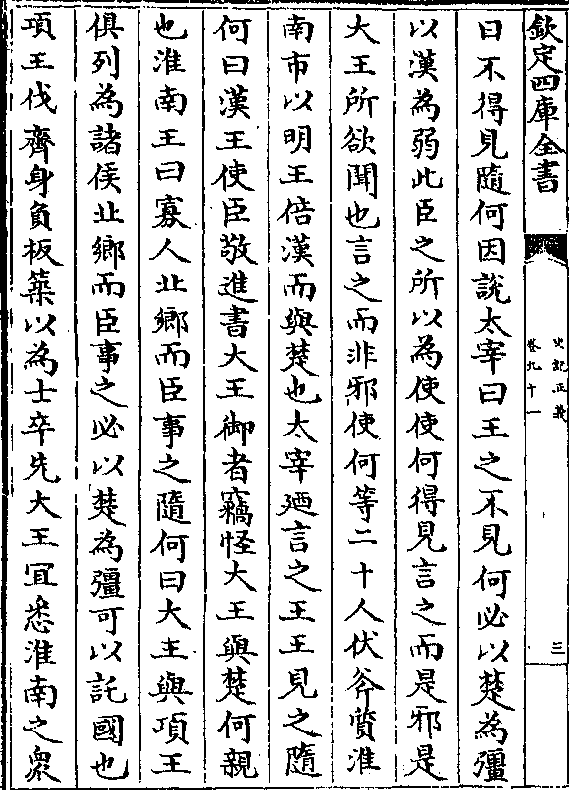 欽定四庫全書
史記正義
卷九十一
三
日不得見隨何因說太宰曰王之不見何必以楚為彊
以漢為弱此臣之所以為使使何得見言之而是邪是
大王所欲聞也言之而非邪使何等二十人伏斧質淮
南市以明王倍漢而與楚也太宰廼言之王王見之隨
何曰漢王使臣敬進書大王御者竊怪大王與楚何親
也淮南王曰寡人北鄉而臣事之隨何曰大王與項王
俱列為諸侯北鄉而臣事之必以楚為彊可以託國也
項王伐齊身負板築以為士卒先大王宜悉淮南之衆